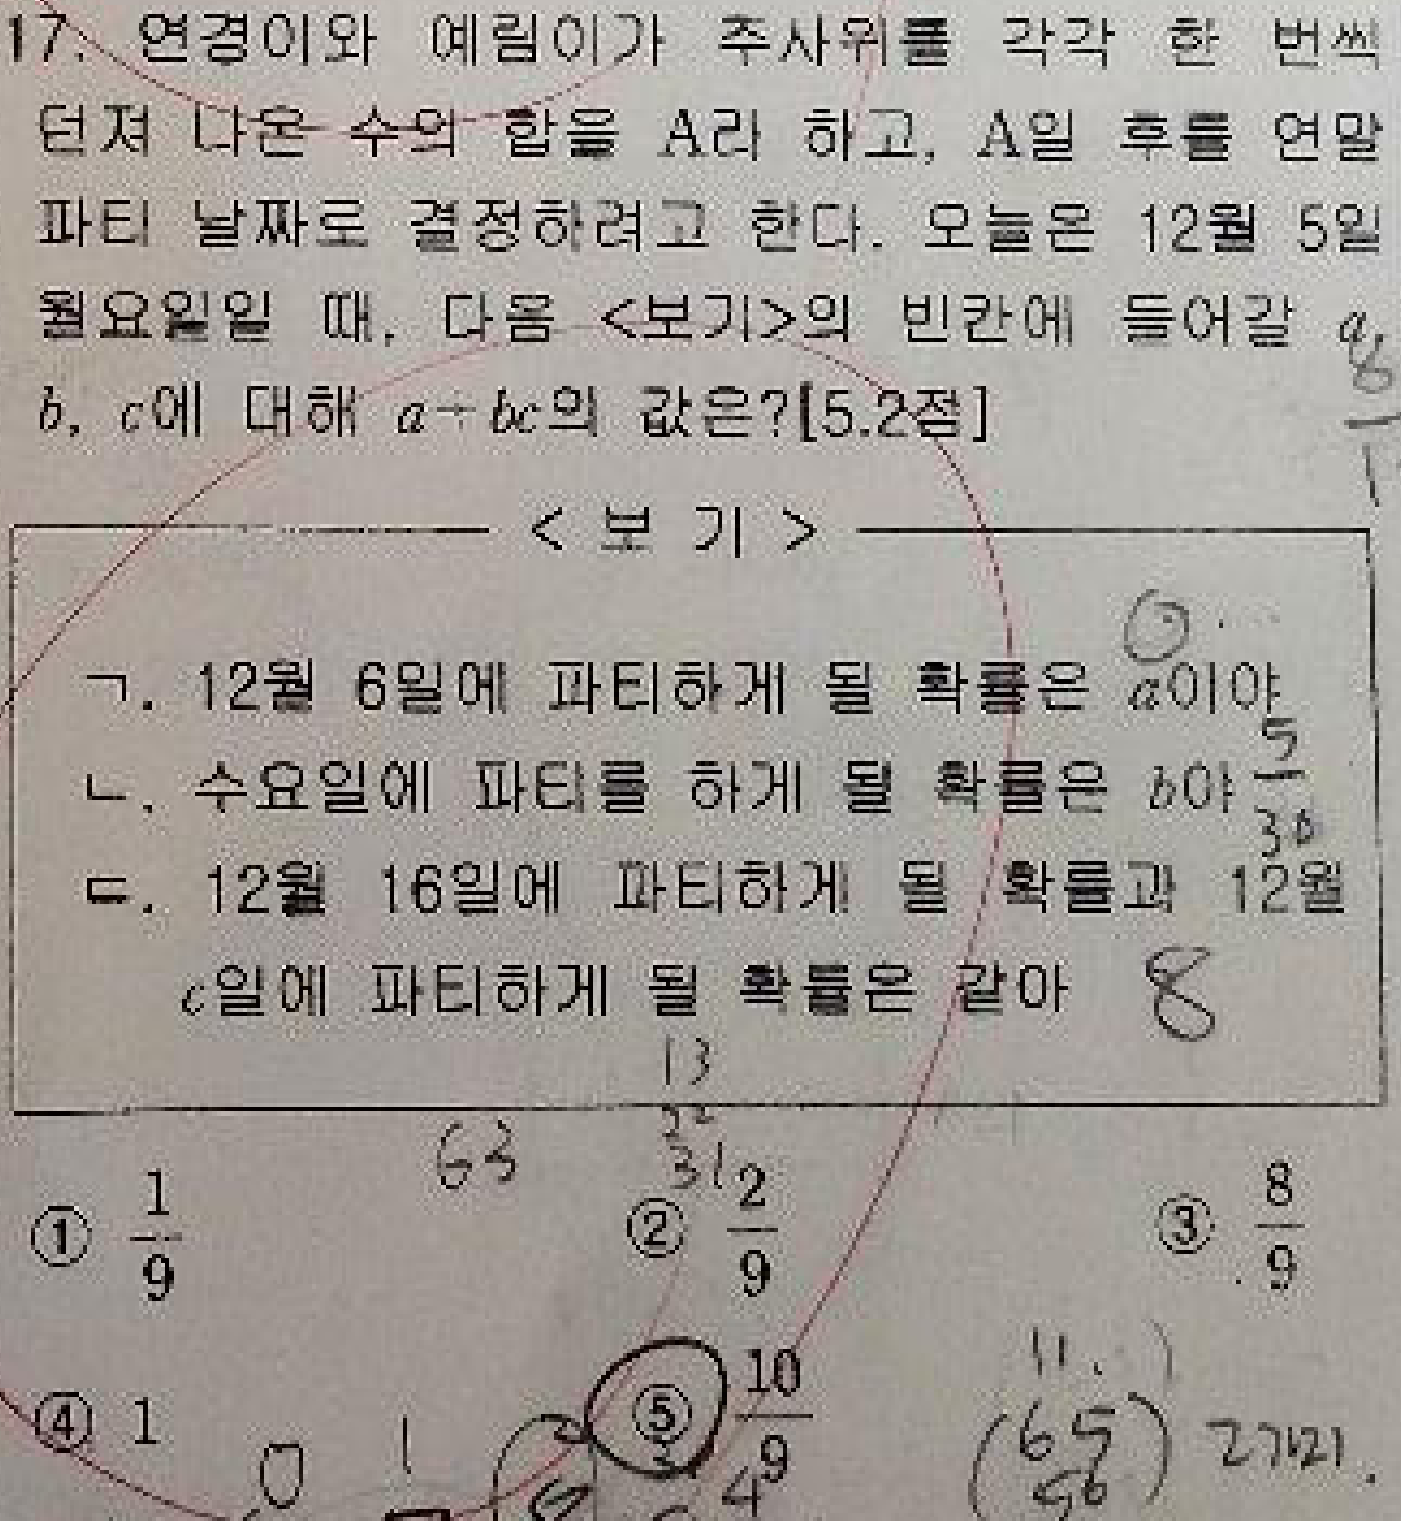 17. 연경이와 예림이가 주사위를 각각 한 번씩
던져 나온 수의 합을 A라 하고, A일 후를 연말
파티 날짜로 결정하려고 한다. 오늘은 12월 5일
월요일일 때, 다음 <보기>의 빈칸에 들어갈 a,
b, c에 대해 a+bc의 값은?[5.2점]
< 보 기 >
ㄱ. 12월 6일에 파티하게 될 확률은 a이야
0
ㄴ. 수요일에 파티를 하게 될 확률은 b야
5
36
ㄷ. 12월 16일에 파티하게 될 확률과 12월
c일에 파티하게 될 확률은 같아 8
13
22
31
63
① 1/9 ② 2/9 ③ 8/9
④ 1 ⑤ 10/9
11.
(65
56) 2가지.
0 1
4